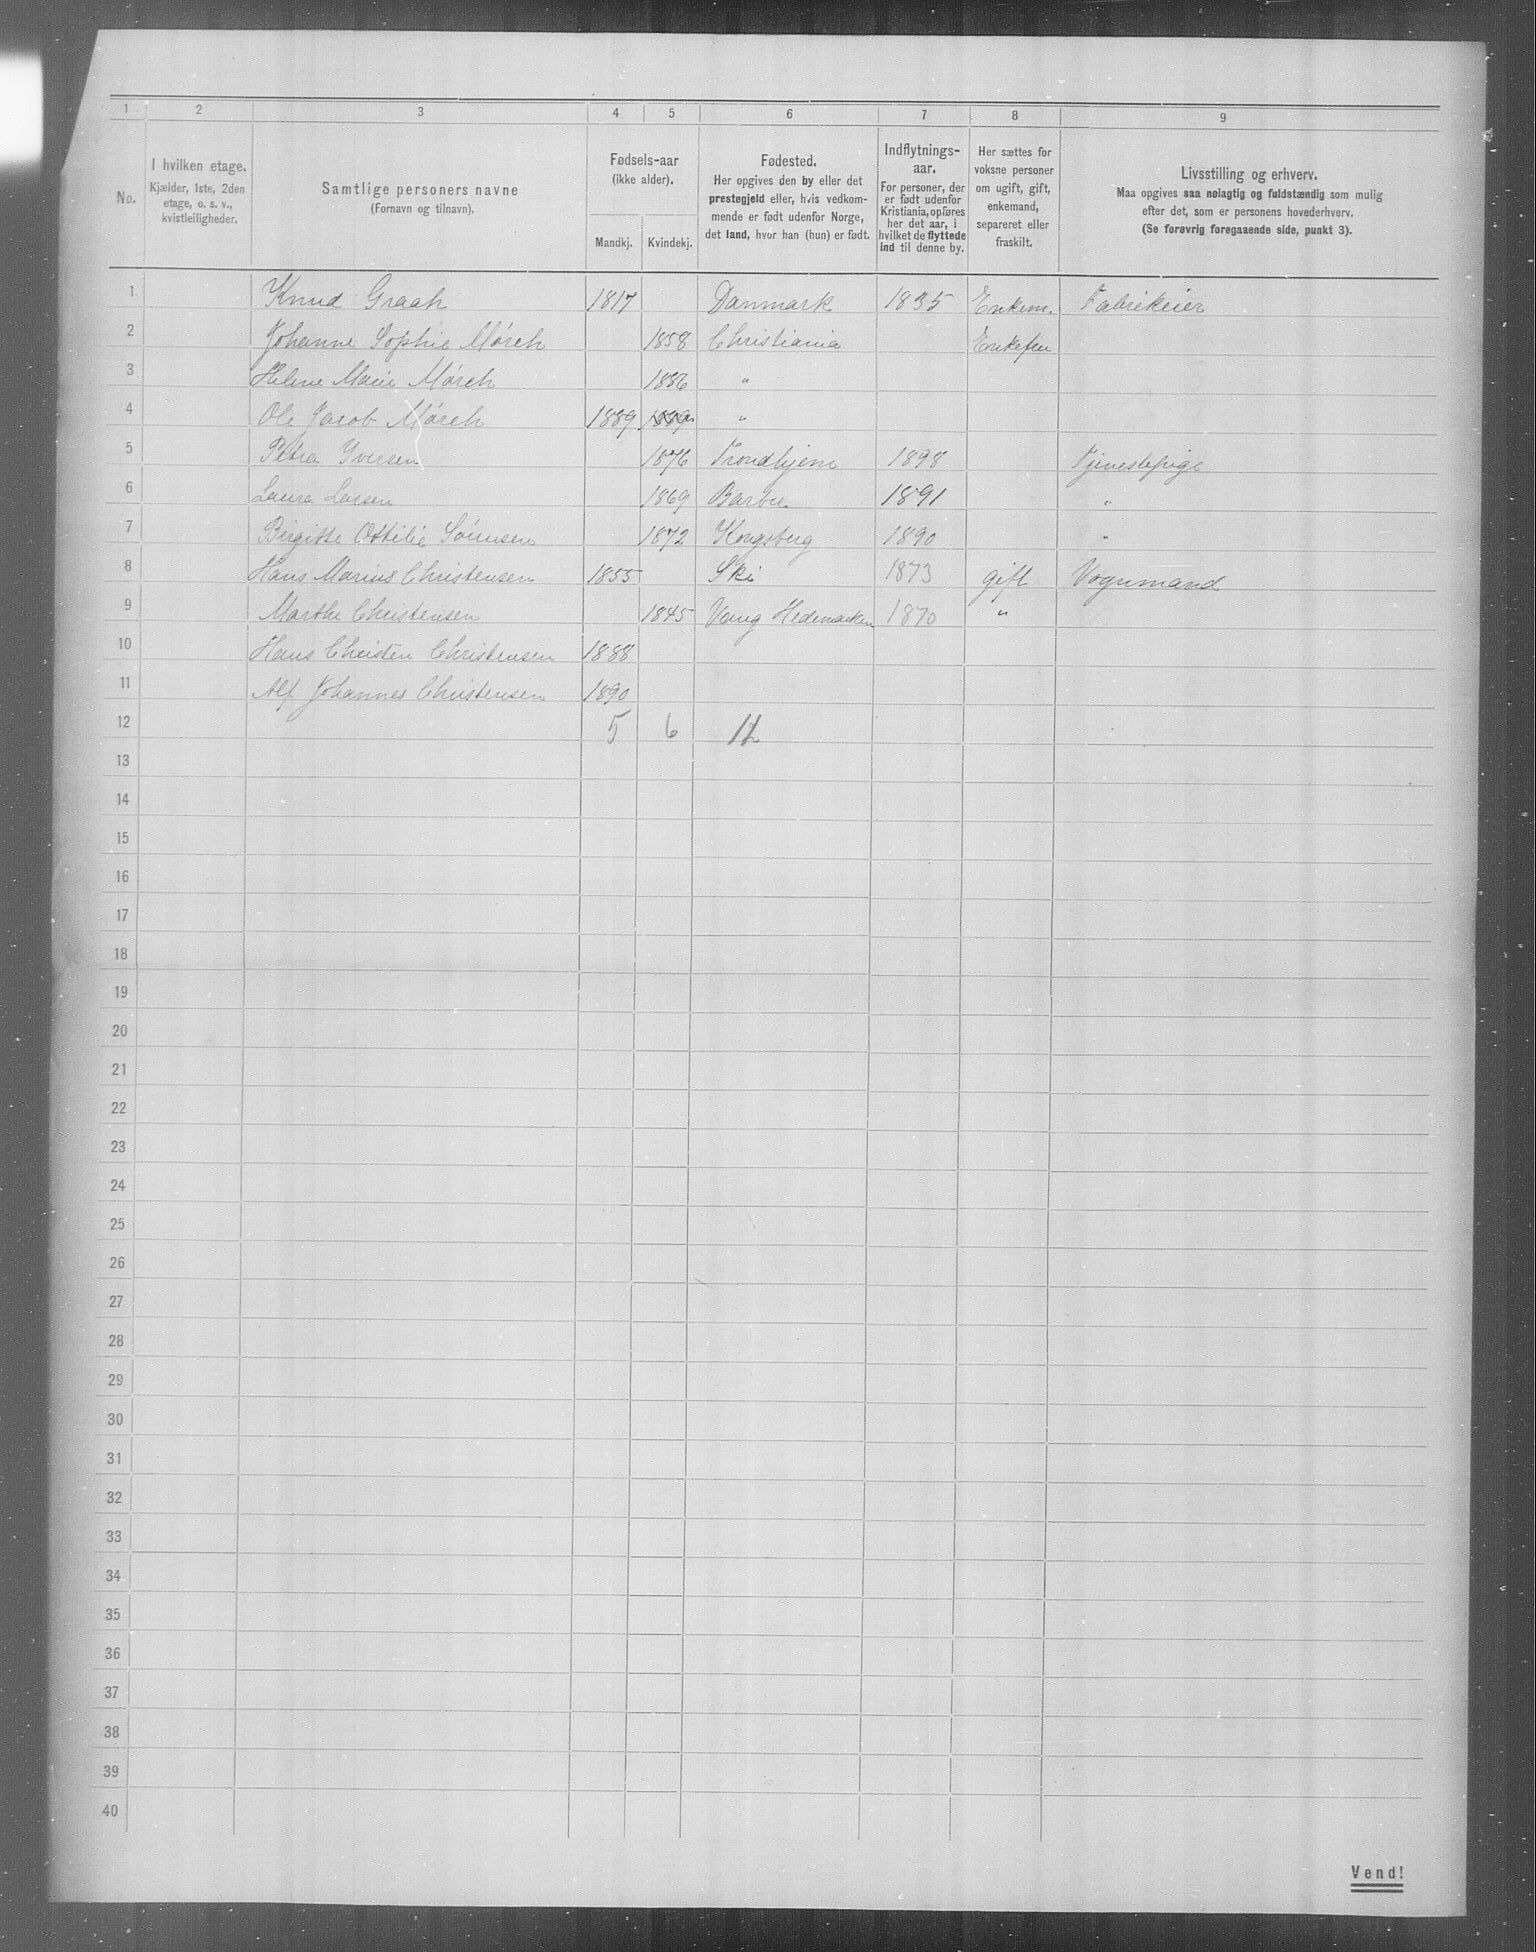 1 2 3 4 5 6 7 8 9
No.
I hvilken etage.
Kjælder, 1ste, 2den
etage, o. s. v.,
kvistleiligheder.
Samtlige personers navne
(Fornavn og tilnavn).
Fødsels-aar
(ikke alder).
Mandkj. Kvindekj.
Fødested.
Her opgives den by eller det
prestegjeld eller, hvis vedkom-
mende er født udenfor Norge,
det land, hvor han (hun) er født.
Indflytnings-
aar.
For personer, der
er født udenfor
Kristiania, opføres
her det aar, i
hvilket de flyttede
ind til denne by.
Her sættes for
voksne personer
om ugift, gift,
enkemand,
separeret eller
fraskilt.
Livsstilling og erhverv.
Maa opgives saa nølagtig og fuldstændig som mulig
efter det, som er personens hovederhverv.
(Se forøvrig foregaaende side, punkt 3).
1 Knud Graah 1817 Danmark 1835 Enkem. Fabrikeier
2 Johanne Sophie Mørch 1858 Christiania Enkefru
3 Helene Marie Mørch 1886 "
4 Ole Jacob Mørch 1889 1889 "
5 Petra Iversen 1876 Trondhjem 1898 Tjenestepige
6 Laura Larsen 1869 Barbu 1891 "
7 Birgitte Ottilie Sørensen 1872 Kongsberg 1890 "
8 Hans Marius Christensen 1855 Ski 1873 gift Vognmand
9 Marthe Christensen 1845 Vang Hedemarken 1870 "
10 Hans Christen Christensen 1888
11 Alf Johannes Christensen 1890
12 5 6
13
14
15
16
17
18
19
20
21
22
23
24
25
26
27
28
29
30
31
32
33
34
35
36
37
38
39
40
Vend!